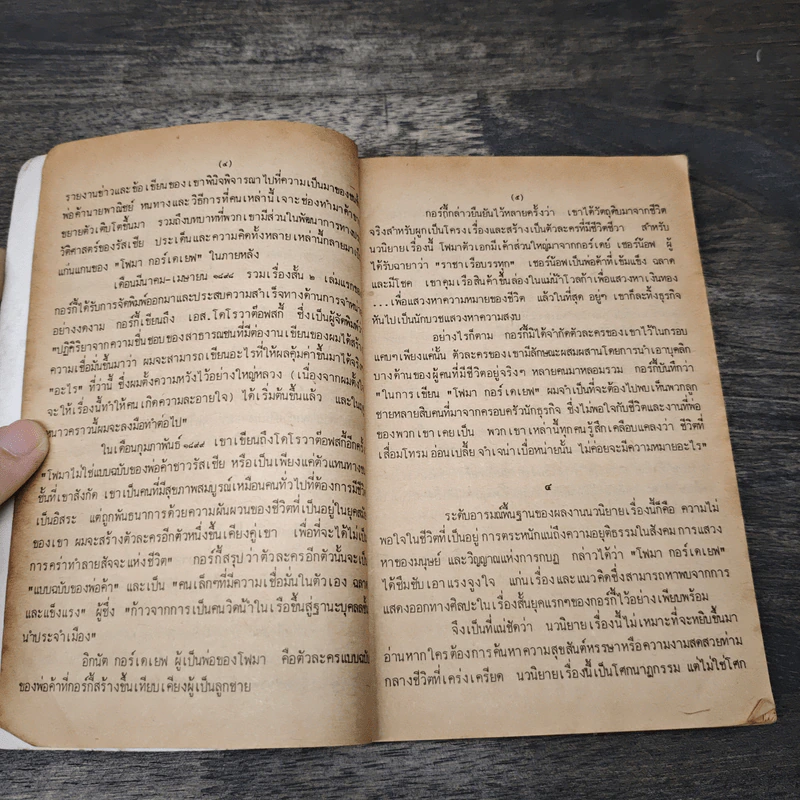 (๔)
รายงานข่าวและข้อเขียนของเขาพินิจพิจารณาไปที่ความเป็นมาของ
พ่อค้านายพาณิชย์ หนทางและวิธีการที่คนเหล่านี้เจาะช่องทำมาค้า
ขยายตัวเติบโตขึ้นมา รวมถึงบทบาทที่พวกเขามีส่วนในพัฒนาการทาง
วัติศาสตร์ของรัสเซีย ประเด็นและความคิดทั้งหลายเหล่านี้กลายมา
แก่นแกนของ "โฟมา กอร์เดเยฟ" ในภายหลัง
เดือนมีนาคม-เมษายน ๑๘๙๘ รวมเรื่องสั้น ๒ เล่มแรก
กอร์กี้ได้รับการจัดพิมพ์ออกมาและประสบความสำเร็จทางด้านการจำหน่าย
อย่างงดงาม กอร์กี้เขียนถึง เอส.โดโรวาต๊อฟสกี้ ซึ่งเป็นผู้จัดพิมพ์
"ปฏิกิริยาจากความชื่นชอบของสาธารณชนที่มีต่องานเขียนของผมได้สร้าง
ความเชื่อมั่นขึ้นมาว่า ผมจะสามารถเขียนอะไรที่ให้ผลคุ้มค่าขึ้นมาได้จริง
"อะไร" ที่ว่านี้ ซึ่งผมตั้งความหวังไว้อย่างใหญ่หลวง (เนื่องจากผมตั้งใจ
จะให้เรื่องนี้ทำให้คนเกิดความละอายใจ) ได้เริ่มต้นขึ้นแล้ว และใน
หนาวคราวนี้ผมจะลงมือทำต่อไป"
ในเดือนกุมภาพันธ์ ๑๘๙๙ เขาเขียนถึงโดโรวาต๊อฟสกี้อีกครั้ง
"โฟมาไม่ใช่แบบฉบับของพ่อค้าชาวรัสเซีย หรือเป็นเพียงแค่ตัวแทนทาง
ชั้นที่เขาสังกัด เขาเป็นคนที่มีสุขภาพสมบูรณ์เหมือนคนทั่วไปที่ต้องการมีชีวิต
เป็นอิสระ แต่ถูกพันธนาการด้วยความผันผวนของชีวิตที่เป็นอยู่ในยุคสมัย
ของเขา ผมจะสร้างตัวละครอีกตัวหนึ่งขึ้นเคียงคู่เขา เพื่อที่จะได้ไม่เป็น
การคร่าทำลายสัจจะแห่งชีวิต" กอร์กี้สรุปว่าตัวละครอีกตัวนั้นจะเป็น
"แบบฉบับของพ่อค้า" และเป็น "คนเล็กๆที่มีความเชื่อมั่นในตัวเอง ฉลาด
และแข็งแรง" ผู้ซึ่ง "ก้าวจากการเป็นคนวิดน้ำในเรือขึ้นสู่ฐานะบุคคลชั้น
นำประจำเมือง"
อิกนัต กอร์เดเยฟ ผู้เป็นพ่อของโฟมา คือตัวละครแบบฉบับ
ของพ่อค้าที่กอร์กี้สร้างขึ้นเทียบเคียงผู้เป็นลูกชาย
(๕)
กอร์กี้กล่าวยืนยันไว้หลายครั้งว่า เขาได้วัตถุดิบมาจากชีวิต
จริงสำหรับผูกเป็นโครงเรื่องและสร้างเป็นตัวละครที่มีชีวิตชีวา สำหรับ
นวนิยายเรื่องนี้ โฟมาตัวเอกมีเค้าส่วนใหญ่มาจากกอร์เดย์ เชอร์น๊อพ ผู้
ได้รับฉายาว่า "ราชาเรือบรรทุก" เชอร์น๊อพเป็นพ่อค้าที่เข้มแข็ง ฉลาด
และมีโชค เขาคุมเรือสินค้าขึ้นล่องในแม่น้ำโวลก้าเพื่อแสวงหาเงินทอง
...เพื่อแสวงหาความหมายของชีวิต แล้วในที่สุด อยู่ๆ เขาก็ละทิ้งธุรกิจ
หันไปเป็นนักบวชแสวงหาความสงบ
อย่างไรก็ตาม กอร์กี้มิได้จำกัดตัวละครของเขาไว้ในกรอบ
แคบๆเพียงแค่นั้น ตัวละครของเขามีลักษณะผสมผสานโดยการนำเอาบุคลิก
บางด้านของผู้คนที่มีชีวิตอยู่จริงๆ หลายคนมาหลอมรวม กอร์กี้บันทึกว่า
"ในการเขียน "โฟมา กอร์เดเยฟ" ผมจำเป็นที่จะต้องไปพบเห็นพวกลูก
ชายหลายสิบคนที่มาจากครอบครัวนักธุรกิจ ซึ่งไม่พอใจกับชีวิตและงานที่พ่อ
ของพวกเขาเคยเป็น พวกเขาเหล่านี้ทุกคนรู้สึกเคลือบแคลงว่า ชีวิตที่
เสื่อมโทรม อ่อนเปลี้ย จำเจน่าเบื่อหน่ายนั้น ไม่ค่อยจะมีความหมายอะไร"
๔
ระดับอารมณ์พื้นฐานของผลงานนวนิยายเรื่องนี้ก็คือ ความไม่
พอใจในชีวิตที่เป็นอยู่ การตระหนักแน่ถึงความอยุติธรรมในสังคม การแสวง
หาของมนุษย์ และวิญญาณแห่งการกบฏ กล่าวได้ว่า "โฟมา กอร์เดเยฟ"
ได้ซึมซับเอาแรงจูงใจ แก่นเรื่องและแนวคิดซึ่งสามารถหาพบจากการ
แสดงออกทางศิลปะในเรื่องสั้นยุคแรกๆของกอร์กี้ไว้อย่างเพียบพร้อม
จึงเป็นที่แน่ชัดว่า นวนิยายเรื่องนี้ไม่เหมาะที่จะหยิบขึ้นมา
อ่านหากใครต้องการค้นหาความสุขสันต์หรรษาหรือความงามสดสวยท่าม
กลางชีวิตที่เคร่งเครียด นวนิยายเรื่องนี้เป็นโศกนาฏกรรม แต่ไม่ใช่โศก